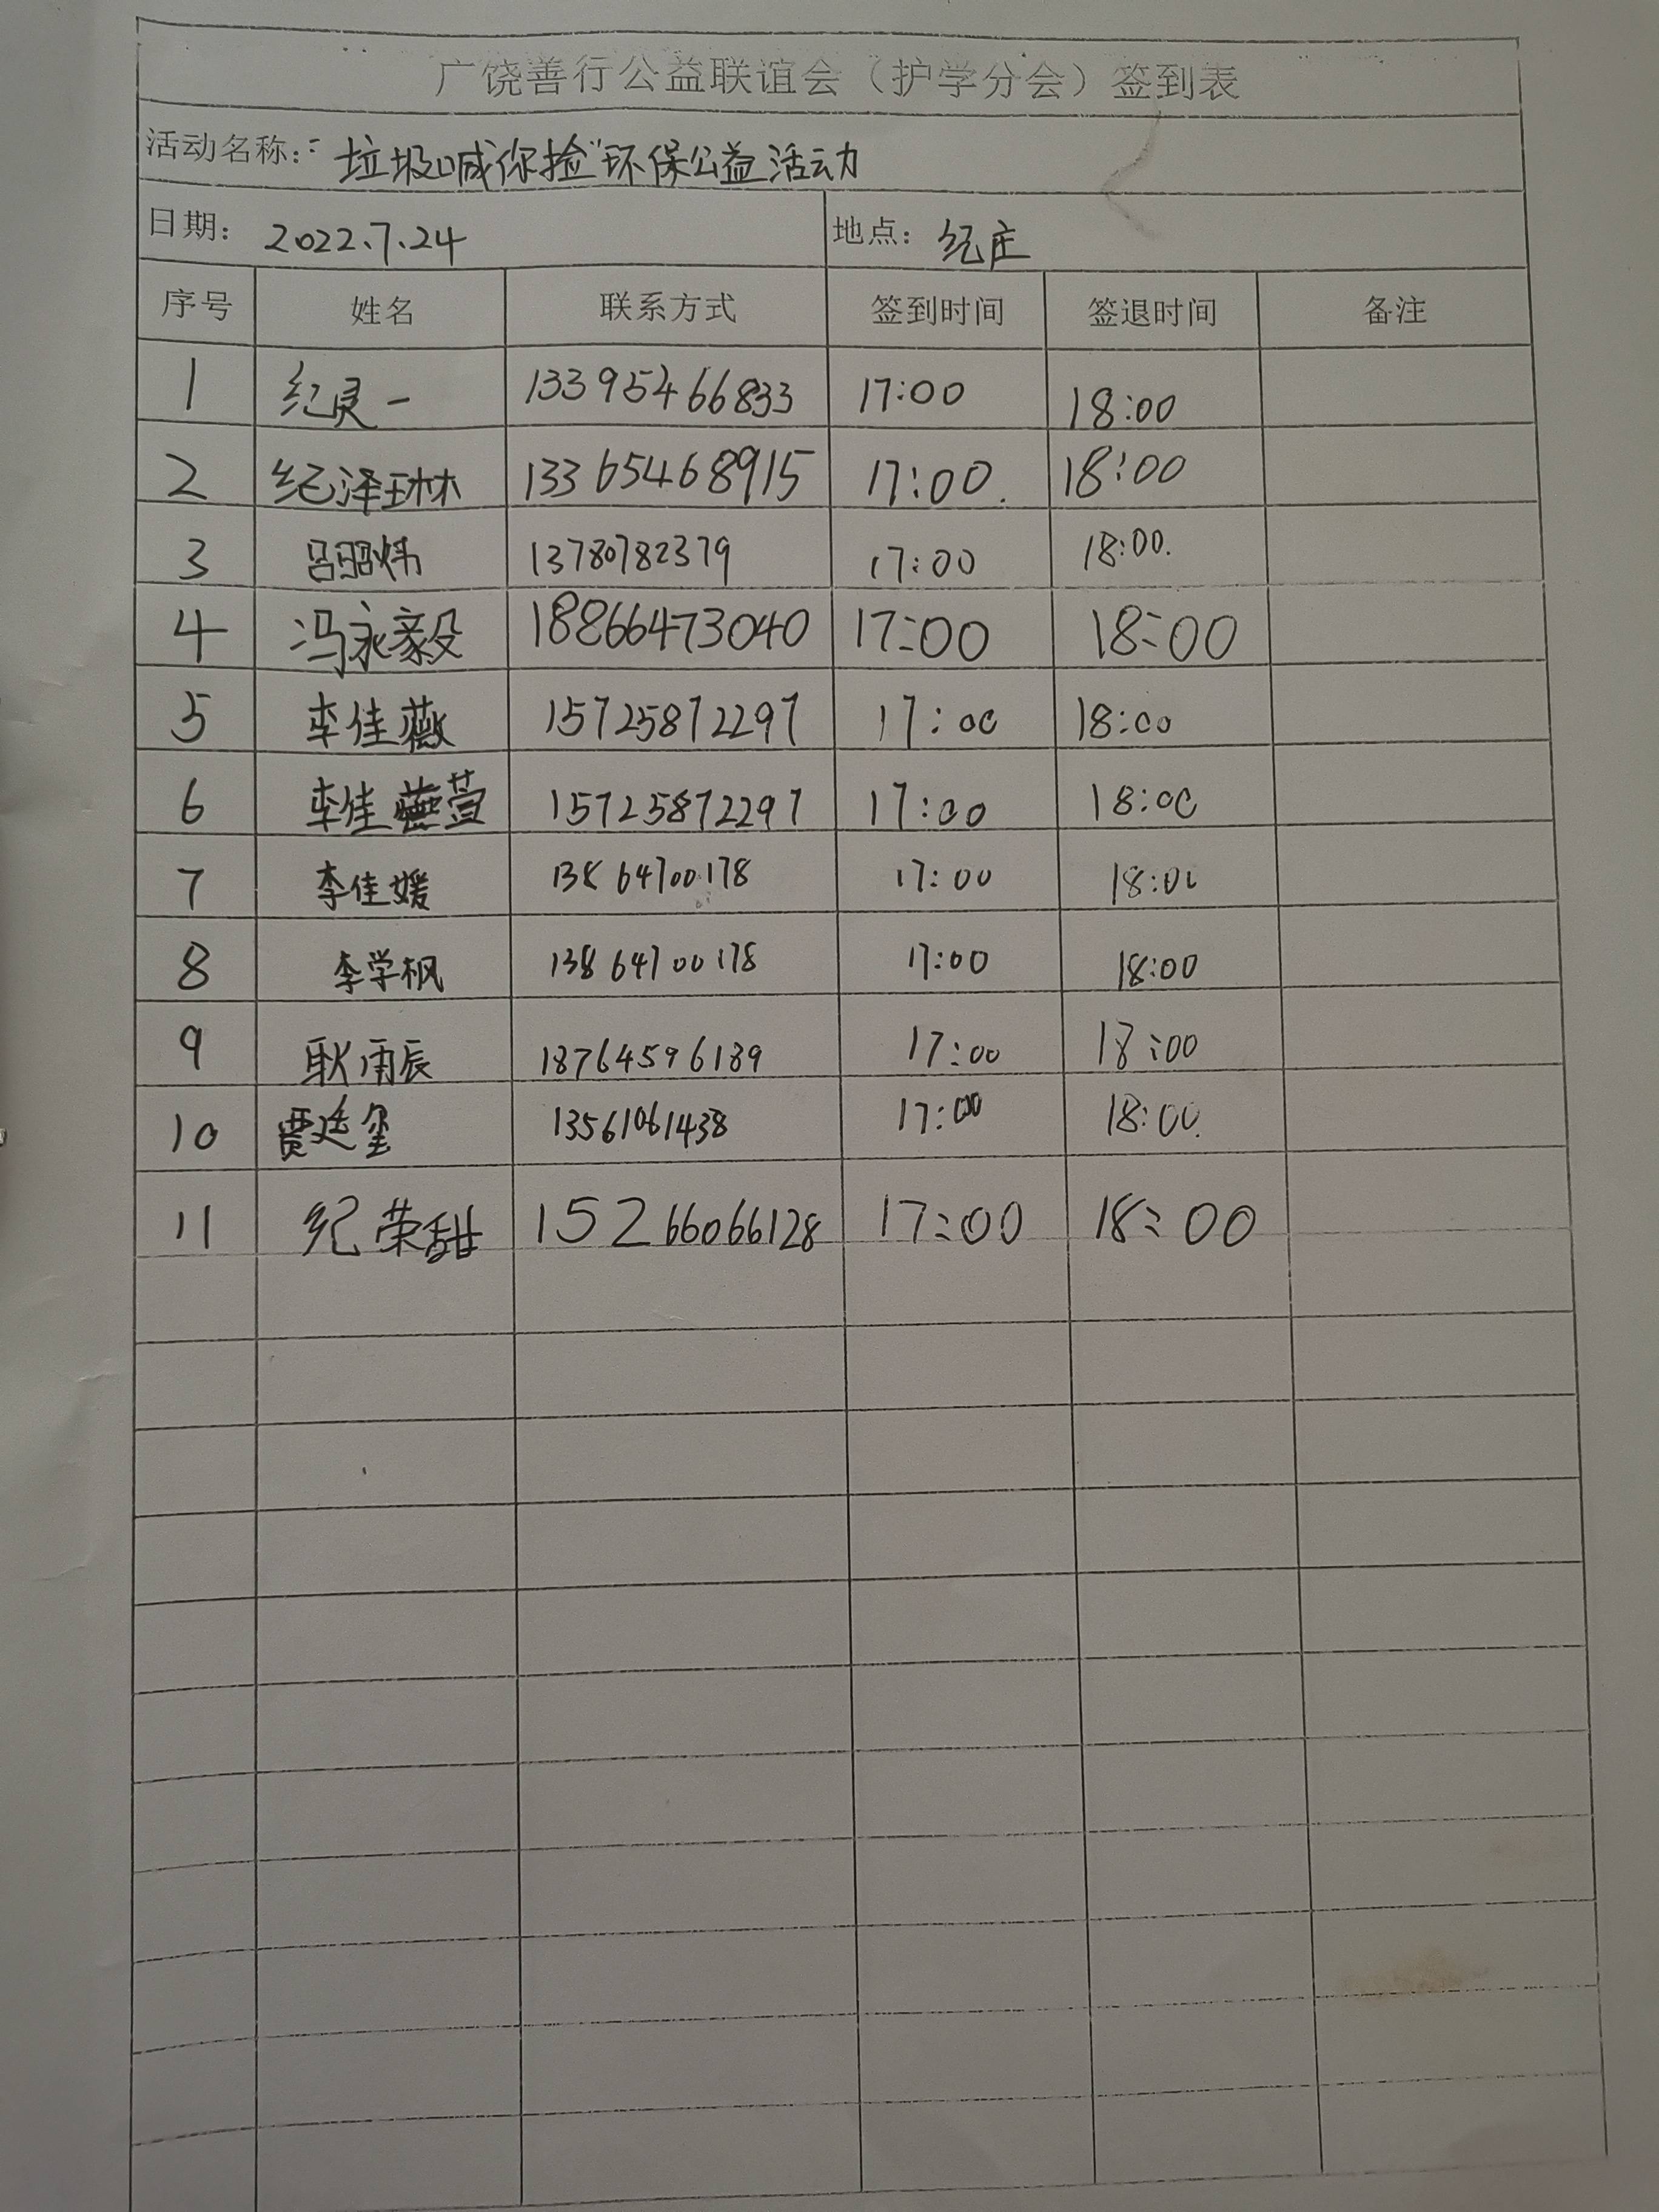 广饶善行公益联谊会（护学分会）签到表
活动名称：“垃圾喊你捡”环保公益活动
日期： 2022.7.24 地点： 纪庄
序号 姓名 联系方式 签到时间 签退时间 备注
1 纪灵一 13395466833 17:00 18:00
2 纪泽琳 13365468915 17:00 18:00
3 吕昭炜 13780782379 17:00 18:00
4 冯永毅 18866473040 17:00 18:00
5 李佳薇 15725872297 17:00 18:00
6 李佳萱 15725872297 17:00 18:00
7 李佳媛 13864700178 17:00 18:00
8 李学枫 13864700178 17:00 18:00
9 耿雨辰 18764596189 17:00 18:00
10 贾廷玺 13561061438 17:00 18:00
11 纪荣甜 15266066128 17:00 18:00